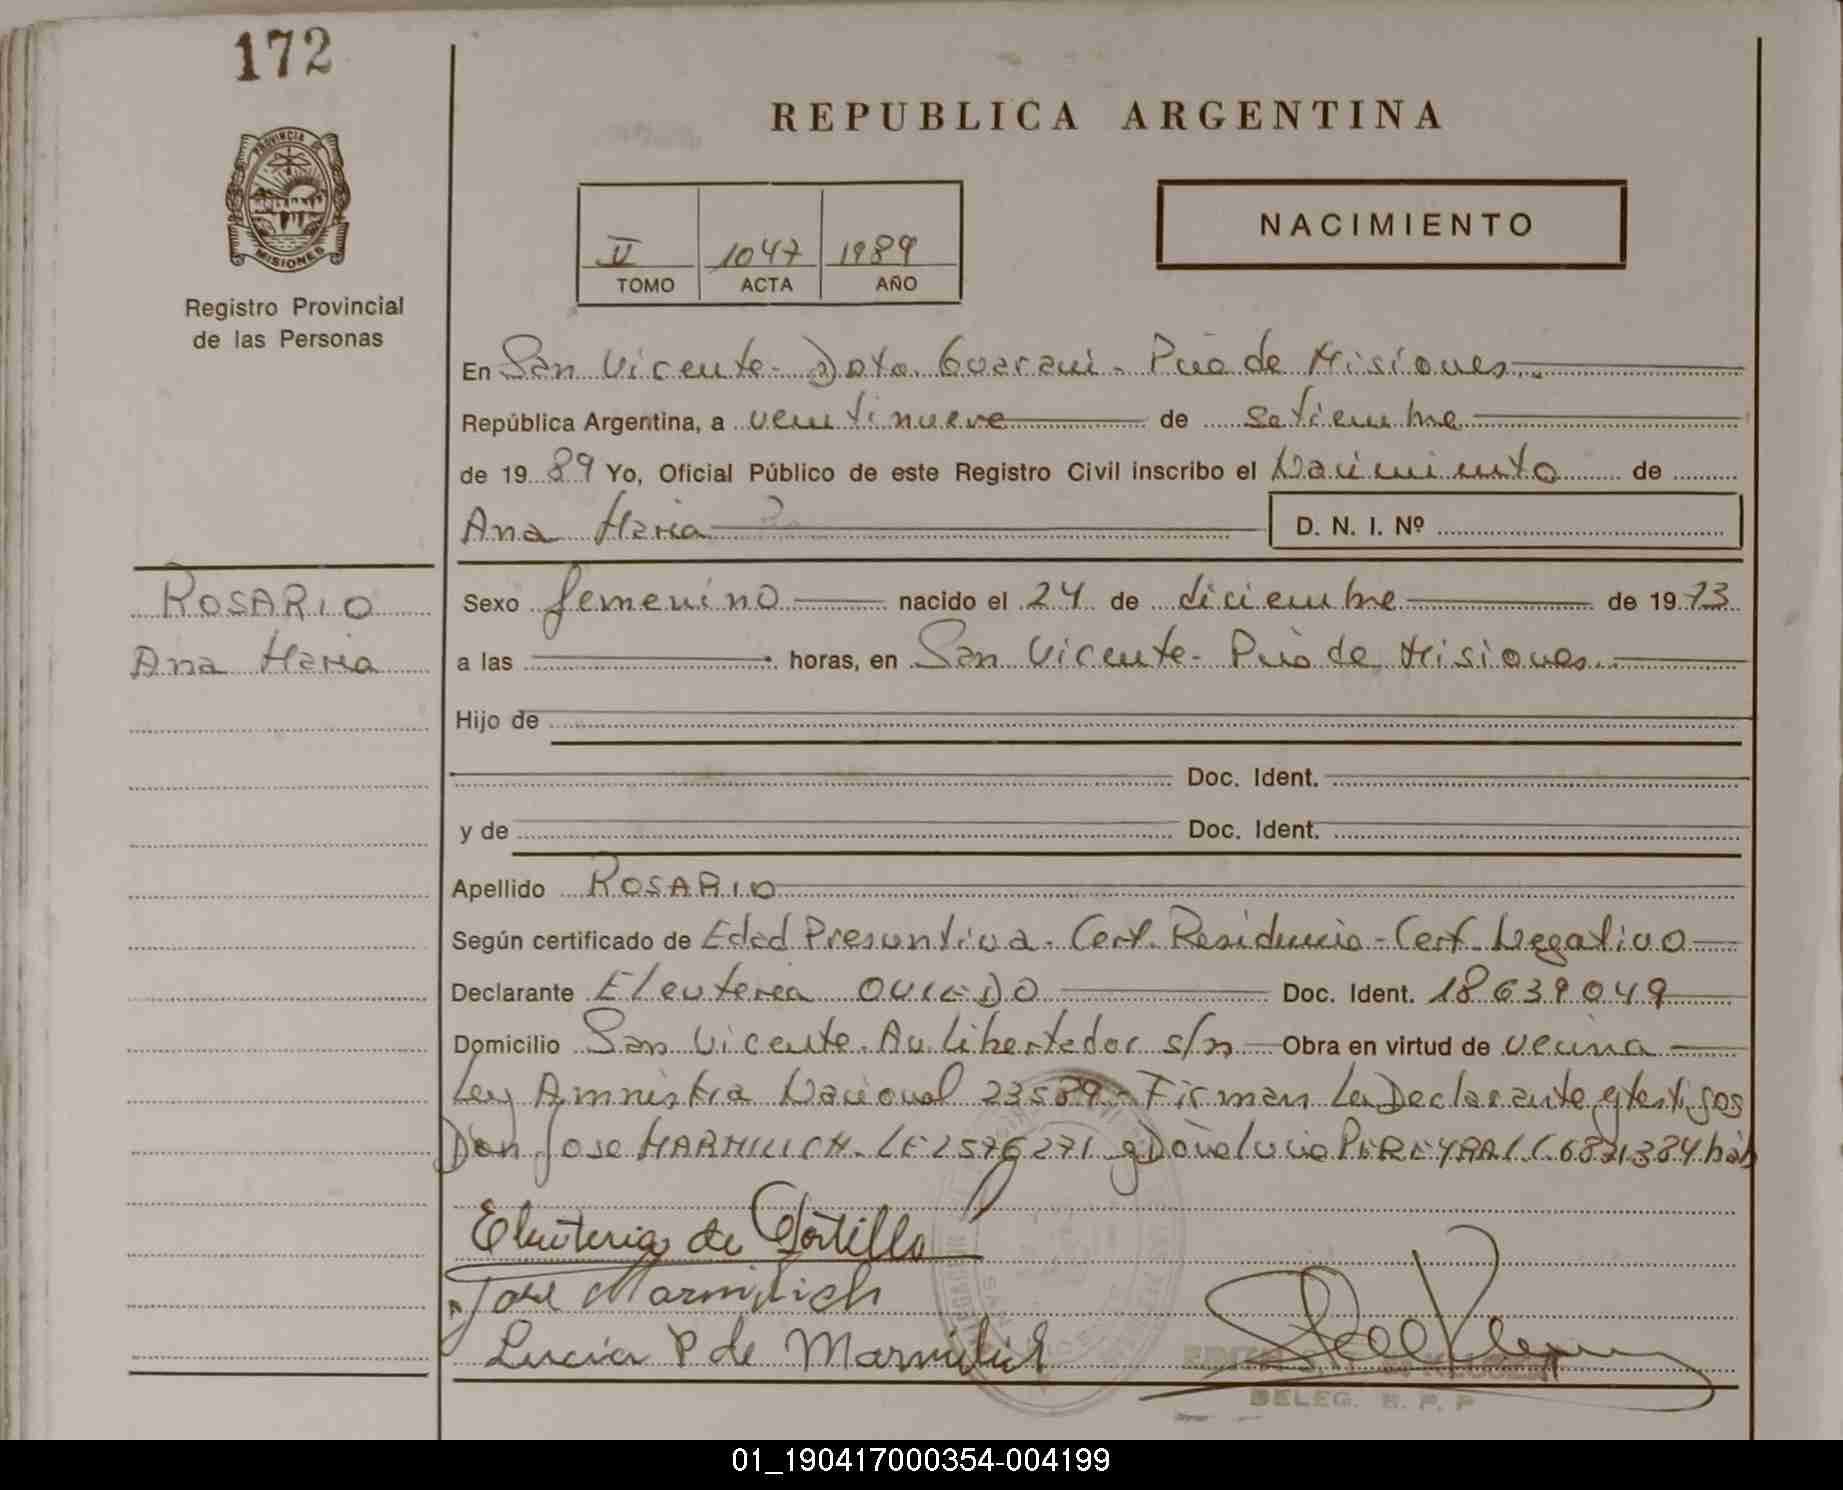 172
REPUBLICA ARGENTINA
PROVINCIA DE
MISIONES
Registro Provincial
de las Personas
II 1047 1989
TOMO ACTA AÑO
NACIMIENTO
En San Vicente - Dpto. Guarani - Pcia de Misiones.
República Argentina, a ventinueve de setiembre
de 19 89 Yo, Oficial Público de este Registro Civil inscribo el Nacimiento de
Ana Maria D. N. I. Nº
ROSARIO
Ana Maria
Sexo femenino nacido el 24 de diciembre de 19 73
a las horas, en San Vicente - Pcia de Misiones.
Hijo de
Doc. Ident.
y de Doc. Ident.
Apellido ROSARIO
Según certificado de Edad Presuntiva - Cert. Residencia - Cert. Negativo
Declarante Eleuteria OVIEDO Doc. Ident. 18639049
Domicilio San Vicente. Av. Libertador s/n Obra en virtud de vecina
Ley Amnistia Nacional 23589 - Firman La Declarante y testigos
Don Jose MARMILICH. LE 2576271 y Doña Lucia PEREYRA LC 6821384 háb
Eleuteria de Portillo
Jose Marmilich
Lucia P de Marmilich
DELEG. R. P. P
01_190417000354-004199